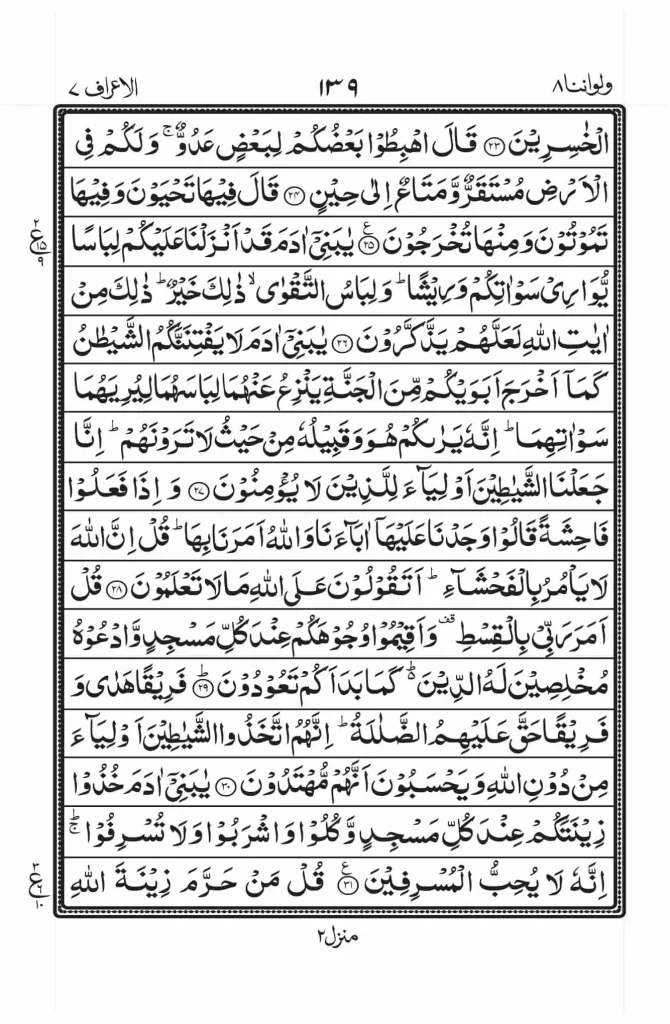 ولواننا ٨ ١٣٩ الاعراف ٧
الْخٰسِرِيْنَ ﴿٢٣﴾ قَالَ اهْبِطُوْا بَعْضُكُمْ لِبَعْضٍ عَدُوٌّ ۚ وَلَكُمْ فِى
الْاَرْضِ مُسْتَقَرٌّ وَّمَتَاعٌ اِلٰى حِيْنٍ ﴿٢٤﴾ قَالَ فِيْهَا تَحْيَوْنَ وَفِيْهَا
تَمُوْتُوْنَ وَمِنْهَا تُخْرَجُوْنَ ﴿٢٥﴾ ع يٰبَنِىْٓ اٰدَمَ قَدْ اَنْزَلْنَا عَلَيْكُمْ لِبَاسًا
٢ ع ١٥ ٩
يُّوَارِىْ سَوْاٰتِكُمْ وَرِيْشًا ؕ وَلِبَاسُ التَّقْوٰى ۙ ذٰلِكَ خَيْرٌ ؕ ذٰلِكَ مِنْ
اٰيٰتِ اللّٰهِ لَعَلَّهُمْ يَذَّكَّرُوْنَ ﴿٢٦﴾ يٰبَنِىْٓ اٰدَمَ لَا يَفْتِنَنَّكُمُ الشَّيْطٰنُ
كَمَاۤ اَخْرَجَ اَبَوَيْكُمْ مِّنَ الْجَنَّةِ يَنْزِعُ عَنْهُمَا لِبَاسَهُمَا لِيُرِيَهُمَا
سَوْاٰتِهِمَا ؕ اِنَّهٗ يَرٰىكُمْ هُوَ وَقَبِيْلُهٗ مِنْ حَيْثُ لَا تَرَوْنَهُمْ ؕ اِنَّا
جَعَلْنَا الشَّيٰطِيْنَ اَوْلِيَآءَ لِلَّذِيْنَ لَا يُؤْمِنُوْنَ ﴿٢٧﴾ وَاِذَا فَعَلُوْا
فَاحِشَةً قَالُوْا وَجَدْنَا عَلَيْهَاۤ اٰبَآءَنَا وَاللّٰهُ اَمَرَنَا بِهَا ؕ قُلْ اِنَّ اللّٰهَ
لَا يَاْمُرُ بِالْفَحْشَآءِ ؕ اَتَقُوْلُوْنَ عَلَى اللّٰهِ مَا لَا تَعْلَمُوْنَ ﴿٢٨﴾ قُلْ
اَمَرَ رَبِّىْ بِالْقِسْطِ قف وَاَقِيْمُوْا وُجُوْهَكُمْ عِنْدَ كُلِّ مَسْجِدٍ وَّادْعُوْهُ
مُخْلِصِيْنَ لَهُ الدِّيْنَ ۬ؕ كَمَا بَدَاَكُمْ تَعُوْدُوْنَ ﴿٢٩﴾ؕ فَرِيْقًا هَدٰى وَ
فَرِيْقًا حَقَّ عَلَيْهِمُ الضَّلٰلَةُ ؕ اِنَّهُمُ اتَّخَذُوا الشَّيٰطِيْنَ اَوْلِيَآءَ
مِنْ دُوْنِ اللّٰهِ وَيَحْسَبُوْنَ اَنَّهُمْ مُّهْتَدُوْنَ ﴿٣٠﴾ يٰبَنِىْٓ اٰدَمَ خُذُوْا
زِيْنَتَكُمْ عِنْدَ كُلِّ مَسْجِدٍ وَّكُلُوْا وَاشْرَبُوْا وَلَا تُسْرِفُوْا ۚؕ
اِنَّهٗ لَا يُحِبُّ الْمُسْرِفِيْنَ ﴿٣١﴾ ع قُلْ مَنْ حَرَّمَ زِيْنَةَ اللّٰهِ
٣ ع ٢ ١٠
منزل ٢